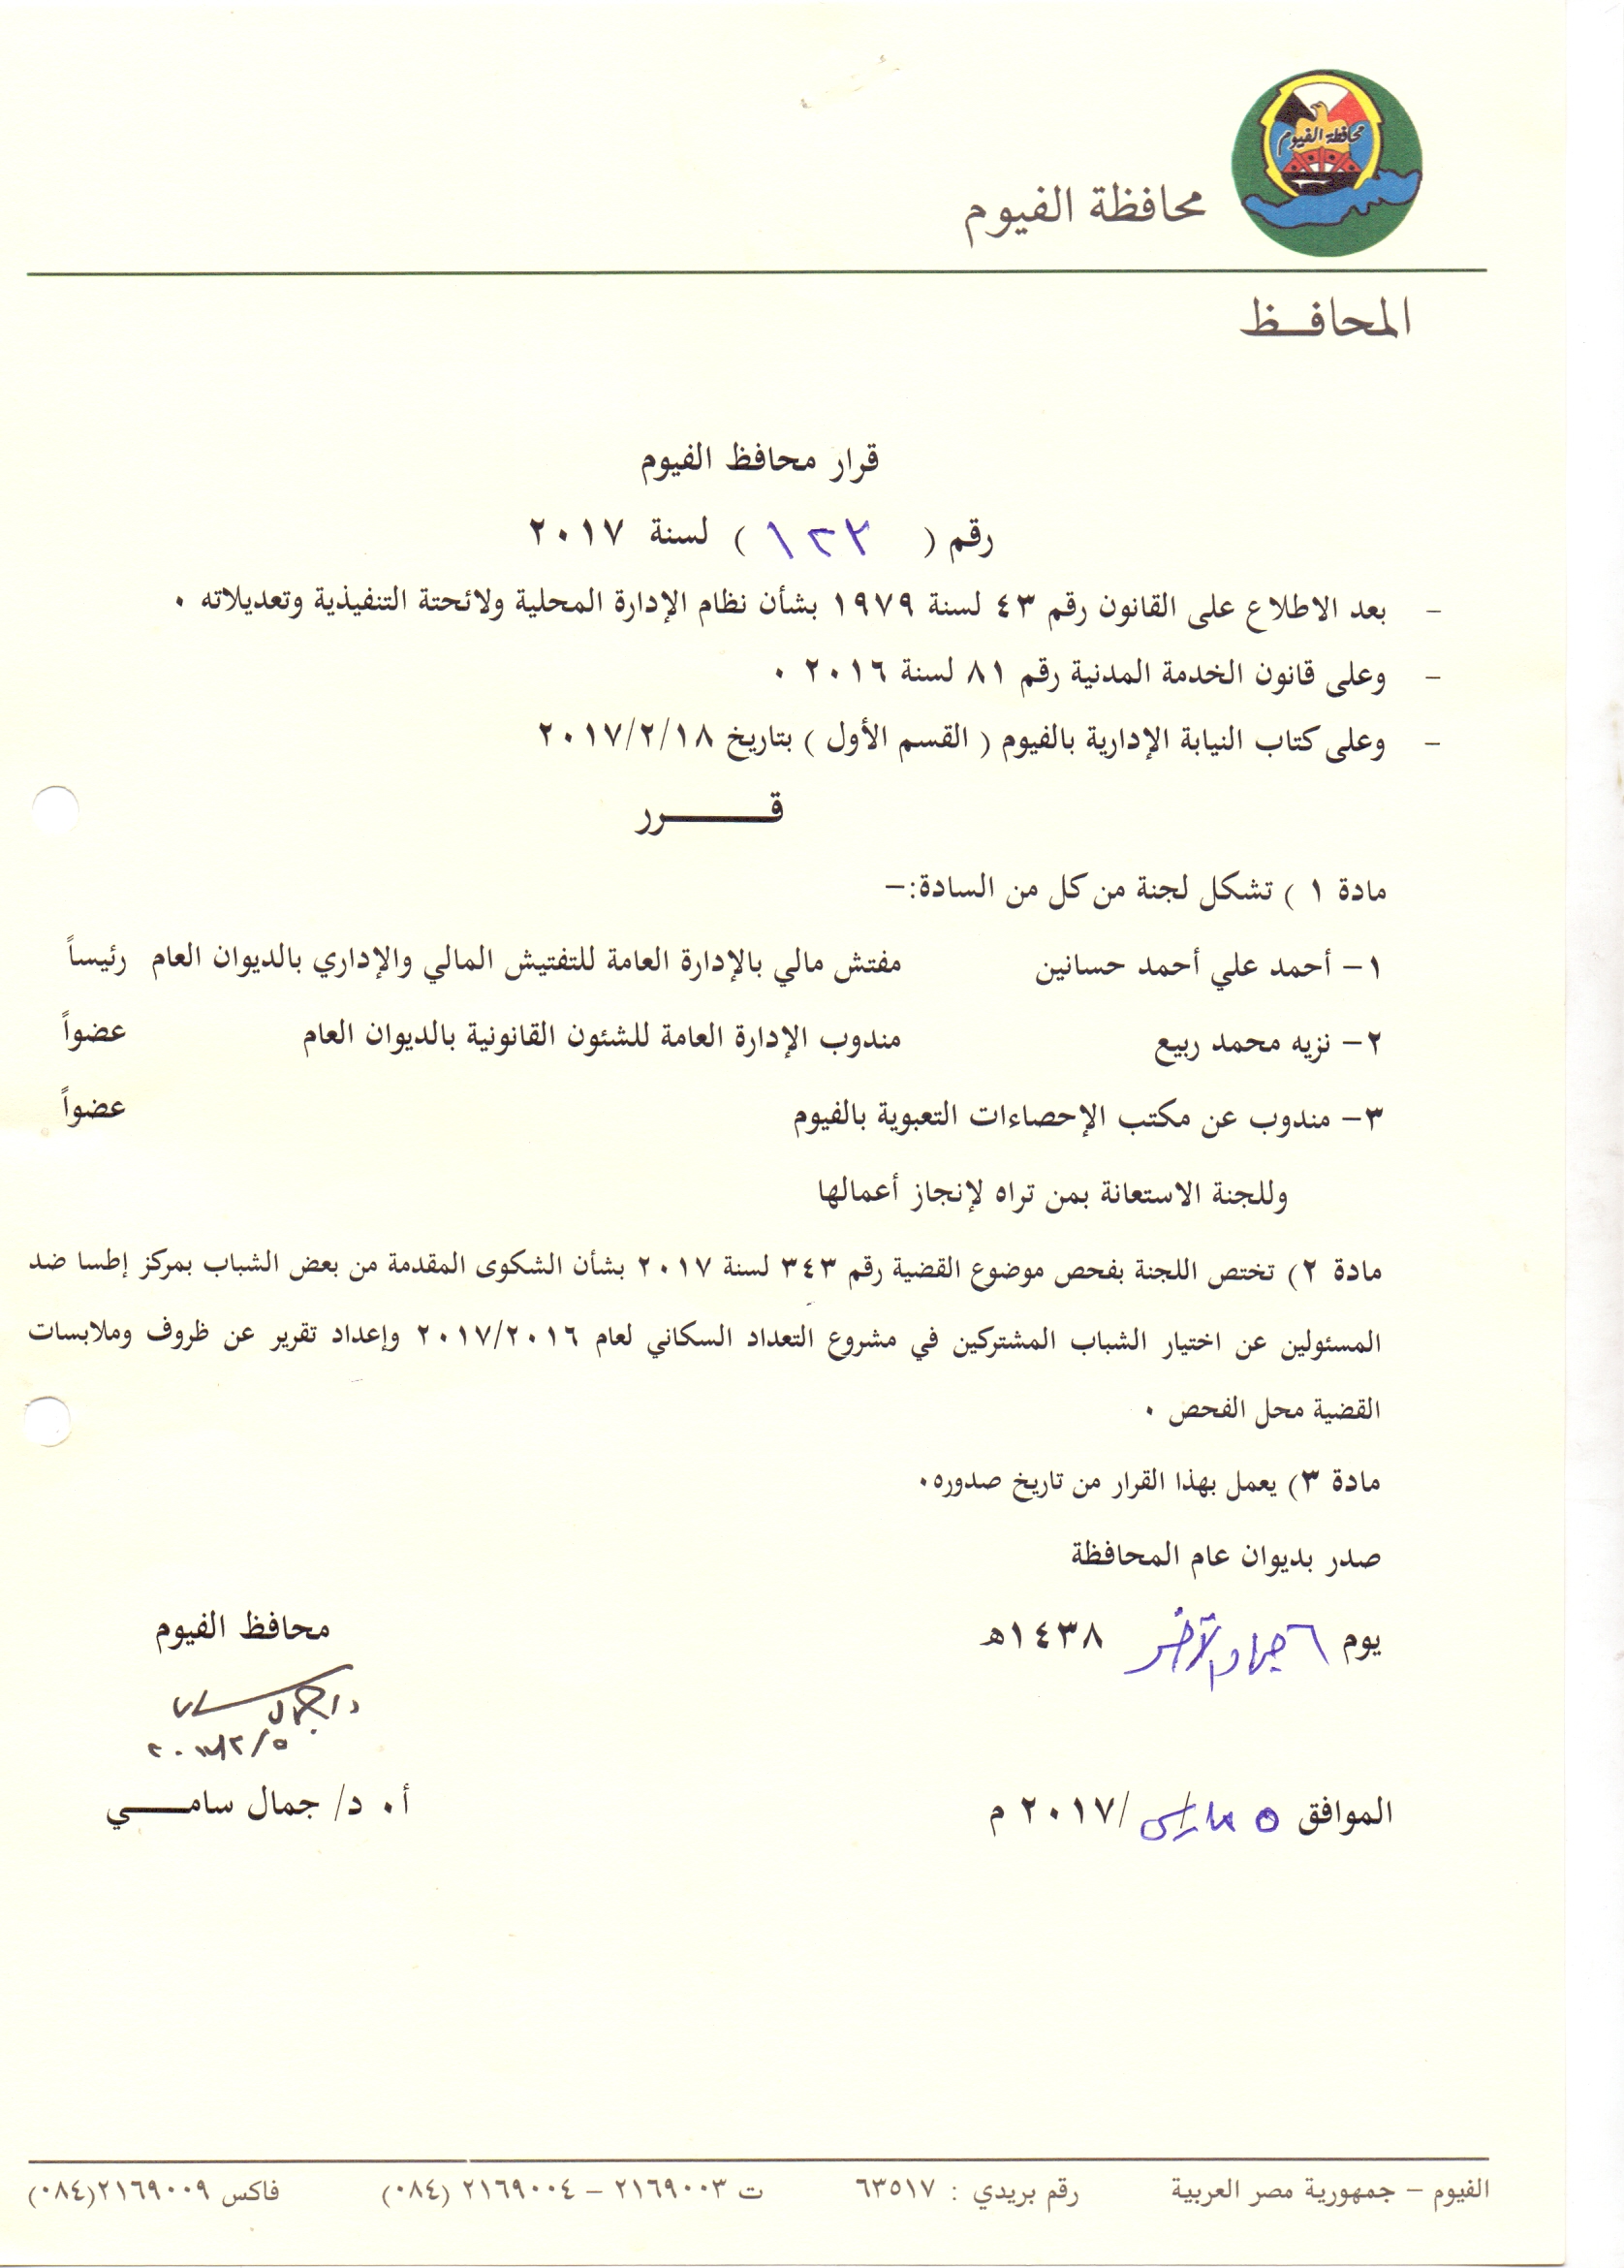 محافظة الفيوم
محافظة الفيوم
المحافـــظ
قرار محافظ الفيوم
رقم ( ) لسنة ٢٠١٧
– بعد الاطلاع على القانون رقم ٤٣ لسنة ١٩٧٩ بشأن نظام الإدارة المحلية ولائحتة التنفيذية وتعديلاته ٠
– وعلى قانون الخدمة المدنية رقم ٨١ لسنة ٢٠١٦ ٠
– وعلى كتاب النيابة الإدارية بالفيوم ( القسم الأول ) بتاريخ ٢٠١٧/٢/١٨
قـــــــرر
مادة ١ ) تشكل لجنة من كل من السادة:–
١– أحمد علي أحمد حسانين مفتش مالي بالإدارة العامة للتفتيش المالي والإداري بالديوان العام رئيساً
٢– نزيه محمد ربيع مندوب الإدارة العامة للشئون القانونية بالديوان العام عضواً
٣– مندوب عن مكتب الإحصاءات التعبوية بالفيوم عضواً
وللجنة الاستعانة بمن تراه لإنجاز أعمالها
مادة ٢) تختص اللجنة بفحص موضوع القضية رقم ٣٤٣ لسنة ٢٠١٧ بشأن الشكوى المقدمة من بعض الشباب بمركز إطسا ضد
المسئولين عن اختيار الشباب المشتركين في مشروع التعداد السكاني لعام ٢٠١٧/٢٠١٦ وإعداد تقرير عن ظروف وملابسات
القضية محل الفحص ٠
مادة ٣) يعمل بهذا القرار من تاريخ صدوره٠
صدر بديوان عام المحافظة
يوم ٦ جماد الآخر ١٤٣٨هـ
محافظ الفيوم
الموافق ٥ مارس /٢٠١٧ م
أ٠ د/ جمال سامـــــي
الفيوم – جمهورية مصر العربية رقم بريدي : ٦٣٥١٧ ت ٢١٦٩٠٠٣ – ٢١٦٩٠٠٤ (٠٨٤) فاكس ٢١٦٩٠٠٩(٠٨٤)